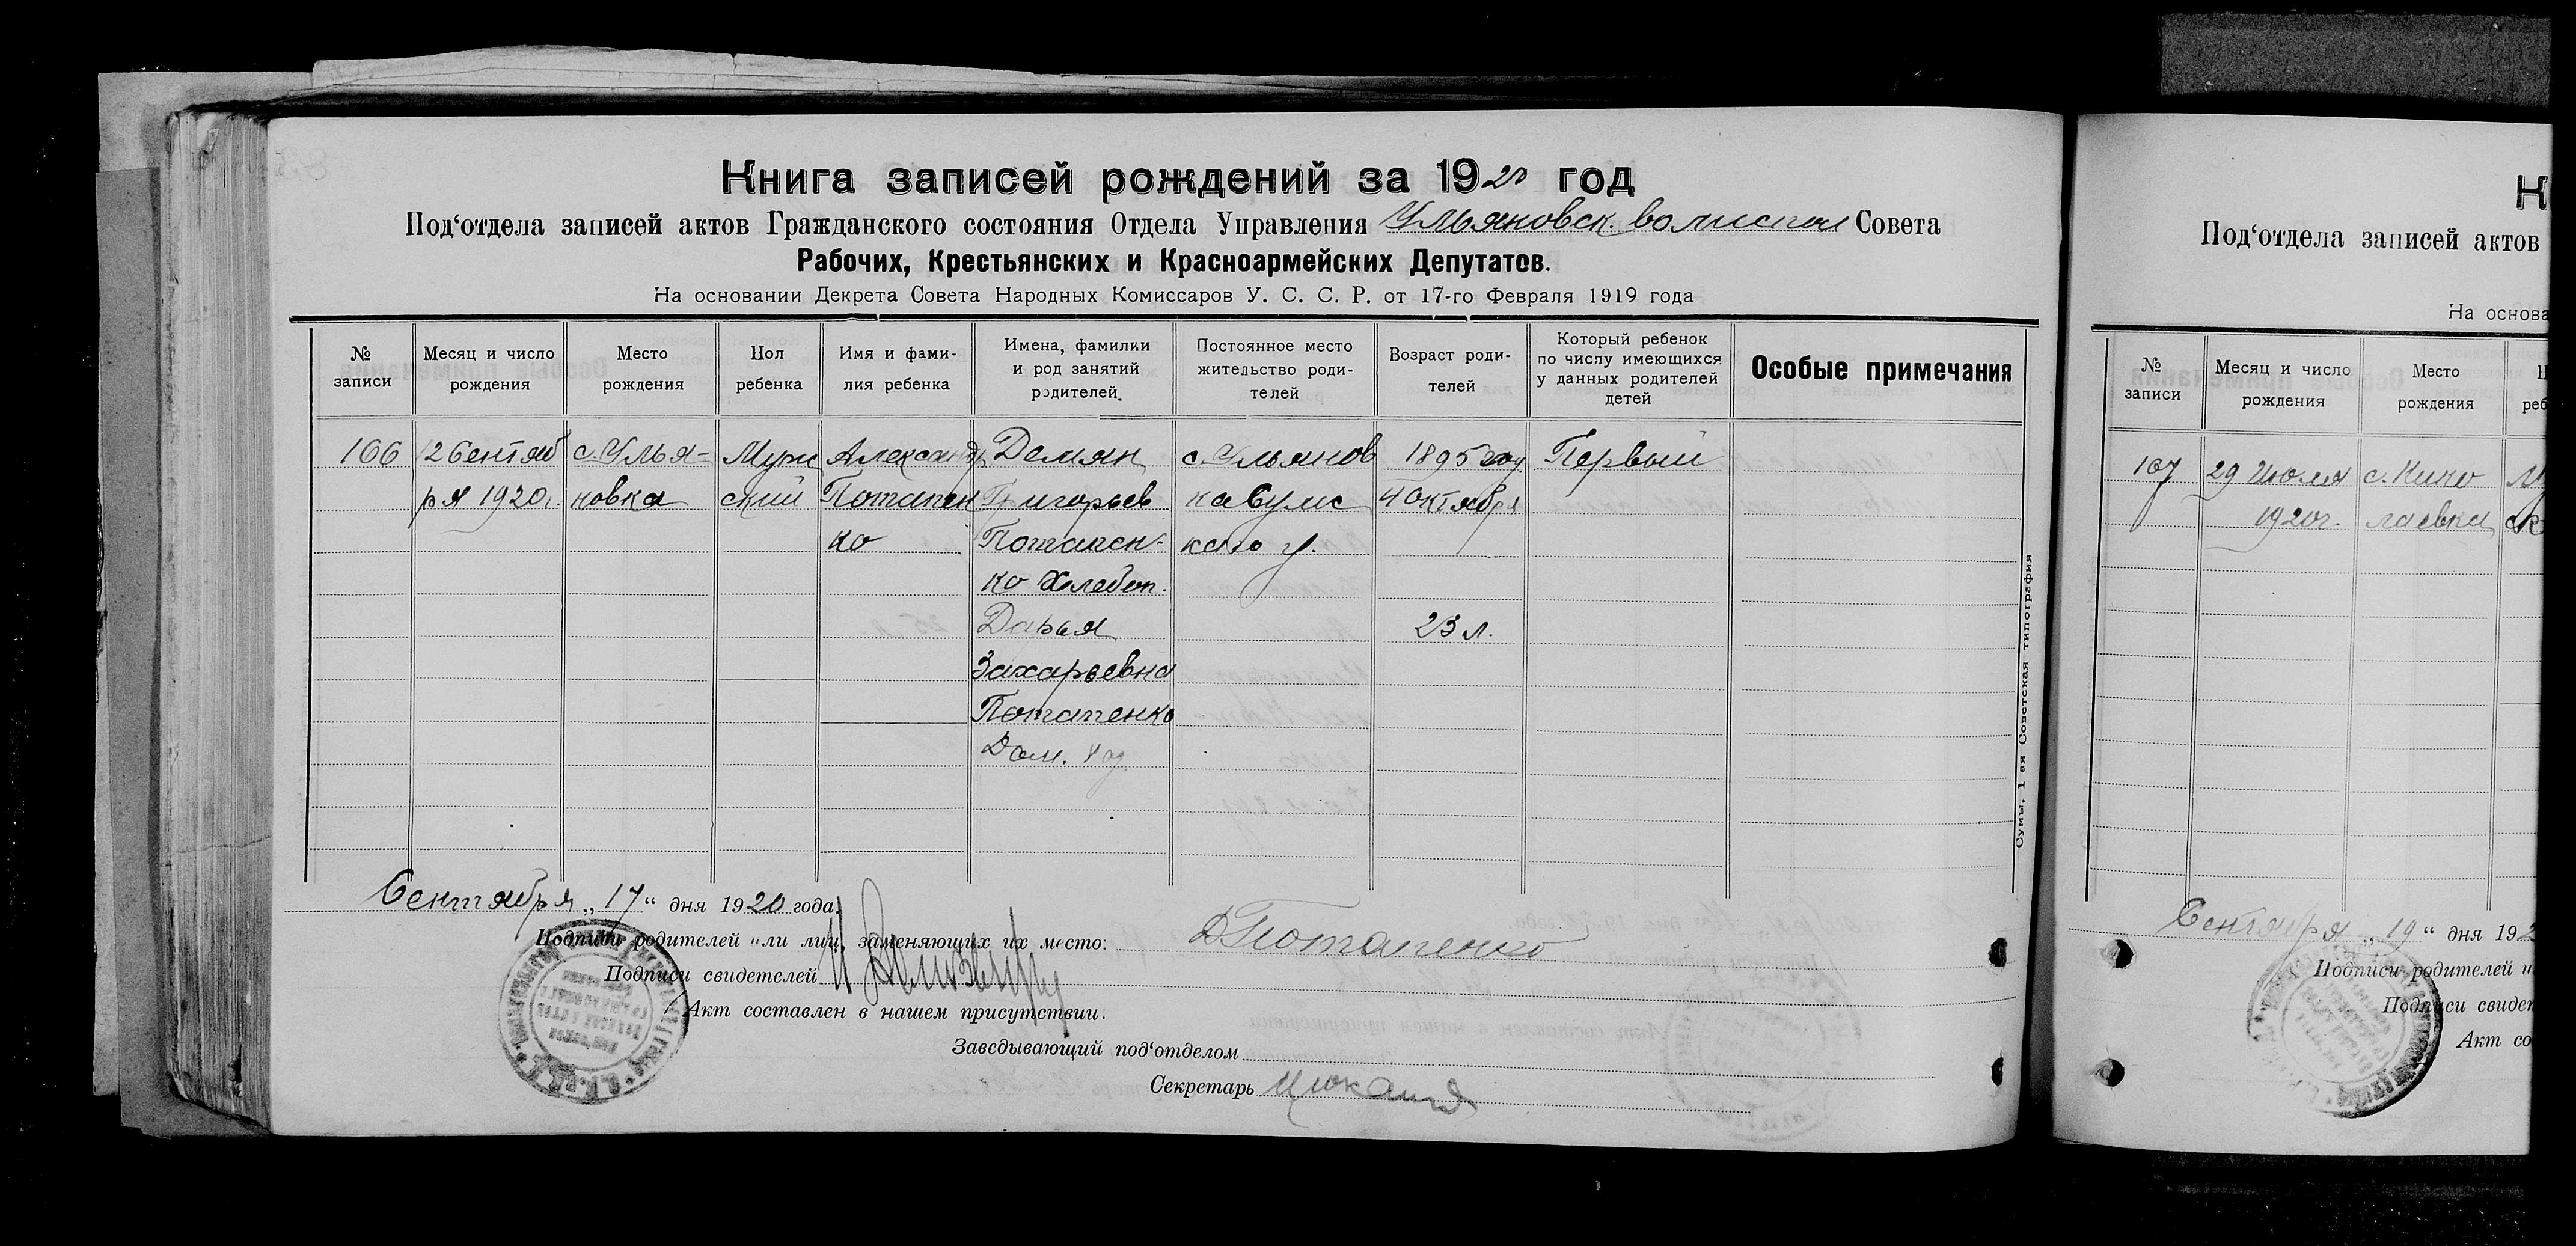 Книга записей рождений за 1920 год
Под‘отдела записей актов Гражданского состояния Отдела Управления Ульяновск. волисполк Совета
Рабочих, Крестьянских и Красноармейских Депутатов.
На основании Декрета Совета Народных Комиссаров У. С. С. Р. от 17-го Февраля 1919 года
№ записи
Месяц и число рождения
Место рождения
Пол ребенка
Имя и фами-
лия ребенка
Имена, фамилии
и род занятий
родителей.
Постоянное место
жительство роди-
телей
Возраст роди-
телей
Который ребенок
по числу имеющихся
у данных родителей
детей
Особые примечания
166
12 Сентяб
ря 1920г.
с. Улья-
новка
Муж
ский
Александр
Потапен
ко
Демян
Григорьев
Потапен-
ко Хлебоп.
Дарья
Захарьевна
Потапенко
Дом.
с. Ульянов
ка
1895 году
4 Октября
23 л.
Первый
Сентября „17“ дня 1920 года.
Подписи родителей или лиц, заменяющих их место: ДПотапенко
Подписи свидетелей
Акт составлен в нашем присутствии.
Заведывающий под‘отделом
Секретарь
Сумы, 1 ая Советская типография
К
Под‘отдела записей актов
На основа
№ записи
Месяц и число рождения
Место рождения
107
29 Июля
1920г.
с. Нико
лаевка
Сентября „19“ дня 192
Подписи родителей и
Подписи свидет
Акт со